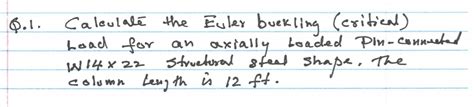 Q.1. Calculate the Euler buckling (critical)
Load for an axially Loaded Pin-connected
W14x22 Structural steel shape. The
column length is 12 ft.